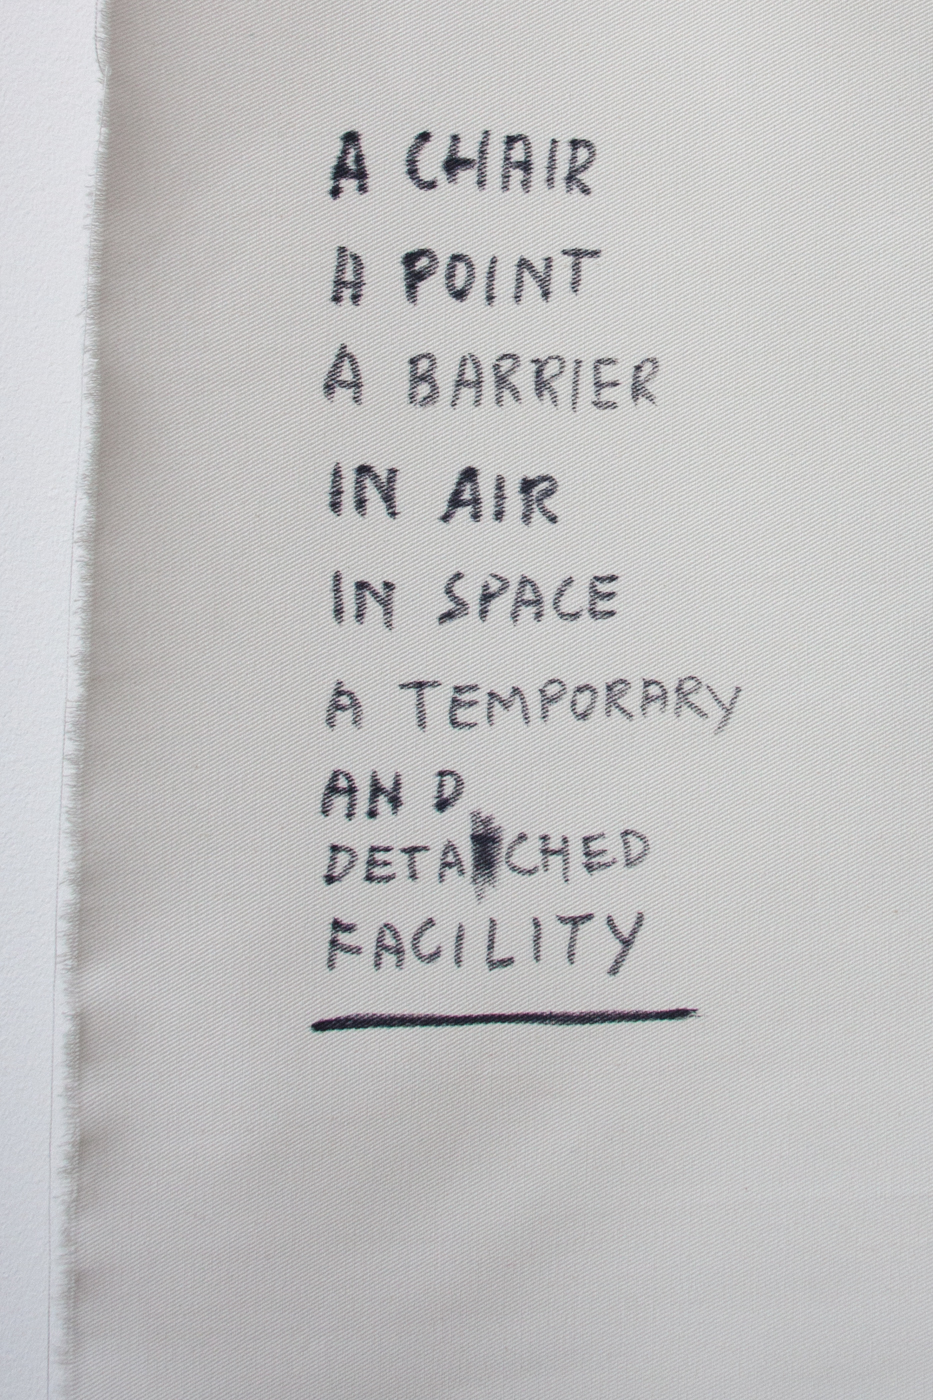 A CHAIR
A POINT
A BARRIER
IN AIR
IN SPACE
A TEMPORARY
AND
DETACHED
FACILITY